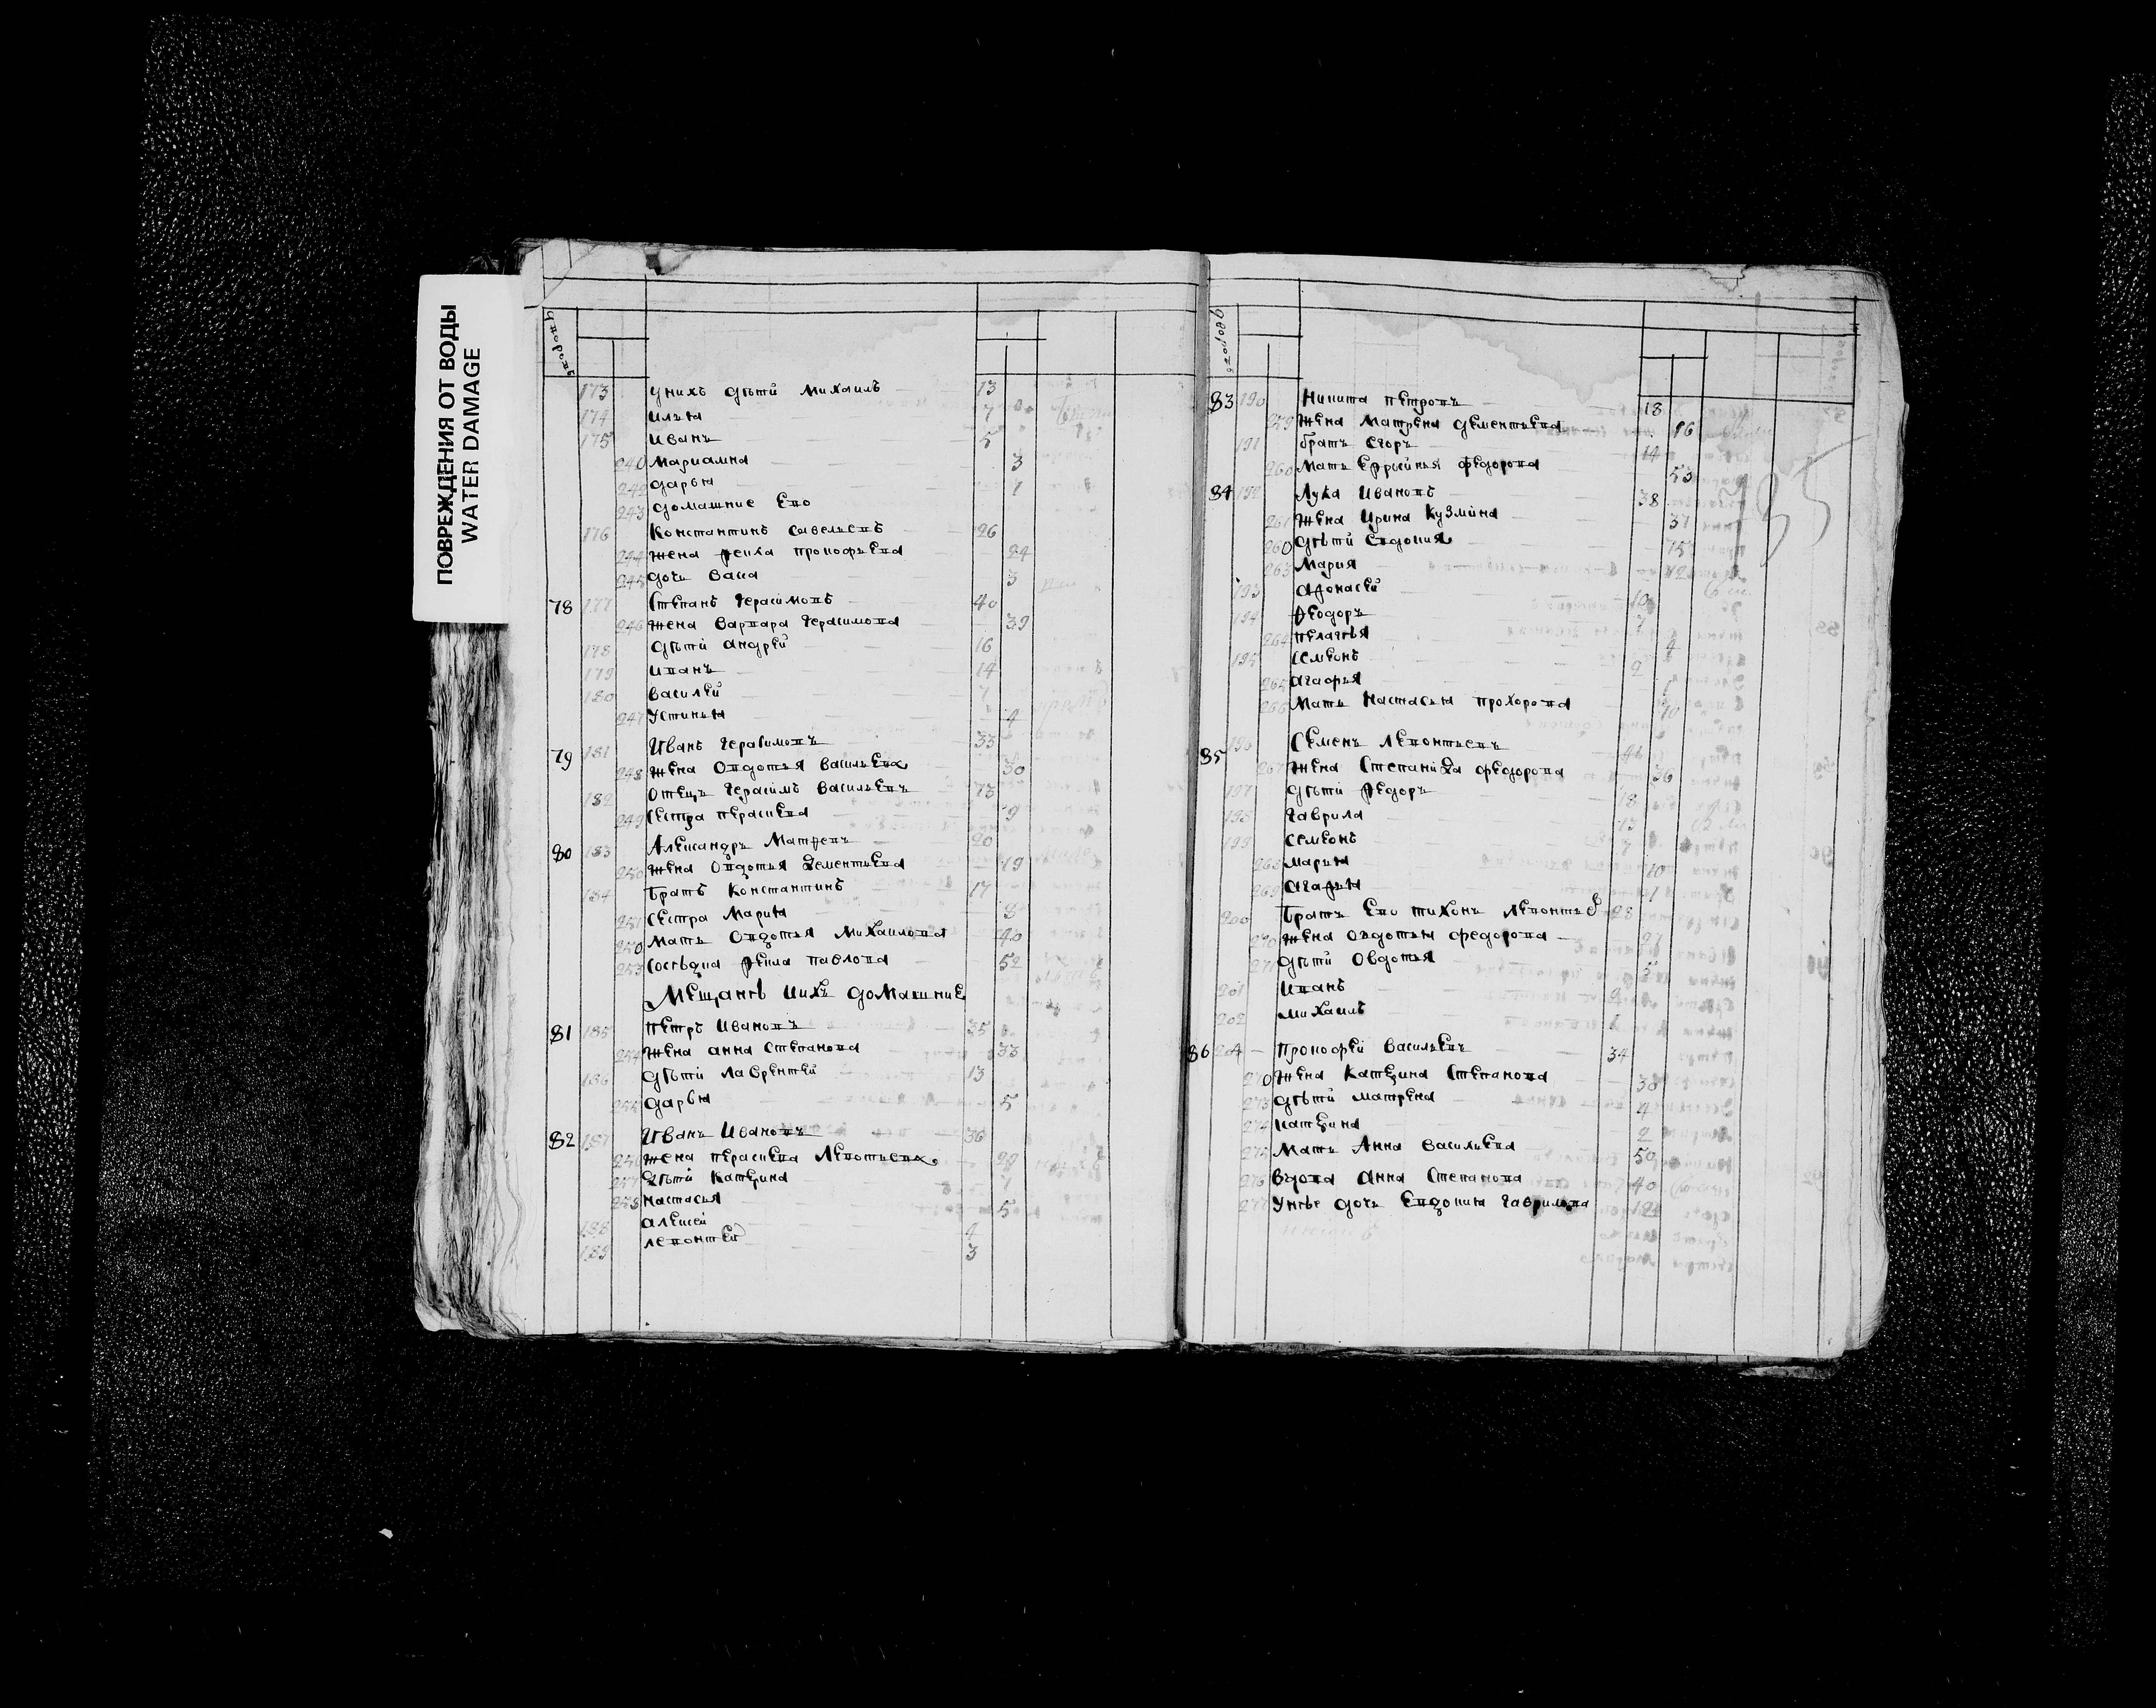 ПОВРЕЖДЕНИЯ ОТ ВОДЫ
WATER DAMAGE
дворовъ
173 унихъ дѣти Михаилъ 13
174 Илья 7
175 Иванъ 5
Мариамна 3
242 дарья 1
243 домашние Ево
176 Константинъ Савельевъ 26
244 жена Прокофьева 24
245 дочь Васа 3
78 177 Степанъ Герасимовъ 40
246 жена Варвара Герасимова 39
178 дѣти андрей 16
179 Иванъ 14
180 василей 7
247 Устинья 4
79 181 Иванъ Герасимовъ 33
248 жена Овдотья васильева 30
182 Отецъ Герасимъ Васильевъ 73
249 Сестра Параскева 9
80 183 Александръ Матвеевъ 20
250 жена Овдотья Дементьева 19
184 Братъ Константинъ 17
251 Сестра Марья
Мать Овдотья Михаилова 40
253 Сосѣдка Фекла Павлова 52
Мещанѣ иихъ домашние
81 185 Петръ Ивановъ 35
254 жена анна Степанова 33
186 дѣти Лаврентей 13
255 дарья 5
82 187 Иванъ Ивановъ 36
256 жена Параскева Леонтьева
257 дѣти Катерина 7
258 настасья 5
188 алексей 4
189 левонтей 3
дворовъ
83 190 Никита Петровъ 18
259 жена Матрена дементьева 16
191 братъ Егоръ 14
260 Мать Ефросинья Федорова 53
84 192 Лука Ивановъ 38
261 жена Ирина Кузмина 37
дѣти Евдокия 15
263 Мария 12
193 Афонасей 10
194 Федоръ 7
264 Пелагѣя 4
195 Семенъ 2
265 агафья 1
266 Мать Настасья Прохорова 70
85 196 Семенъ Левонтьевъ
267 жена Степанида Федорова 36
197 дѣти Федоръ 18
198 Гаврила 13
199 Семенъ 7
268 Марья 10
269 агафья 1
200 Братъ Ево Тихонъ Левонтьев 28
270 жена Овдотья Федорова 27
271 дѣти Овдотья 5
201 Иванъ 2
202 Михаилъ 1
86 204 Прокофей Васильевъ 34
жена Катерина Степанова 38
273 дѣти Матрена 4
274 Катерина 2
275 Мать Анна Васильева 50
276 вдова Анна Степанова 40
277 Унѣе дочь Евдокия Гаврилова 12